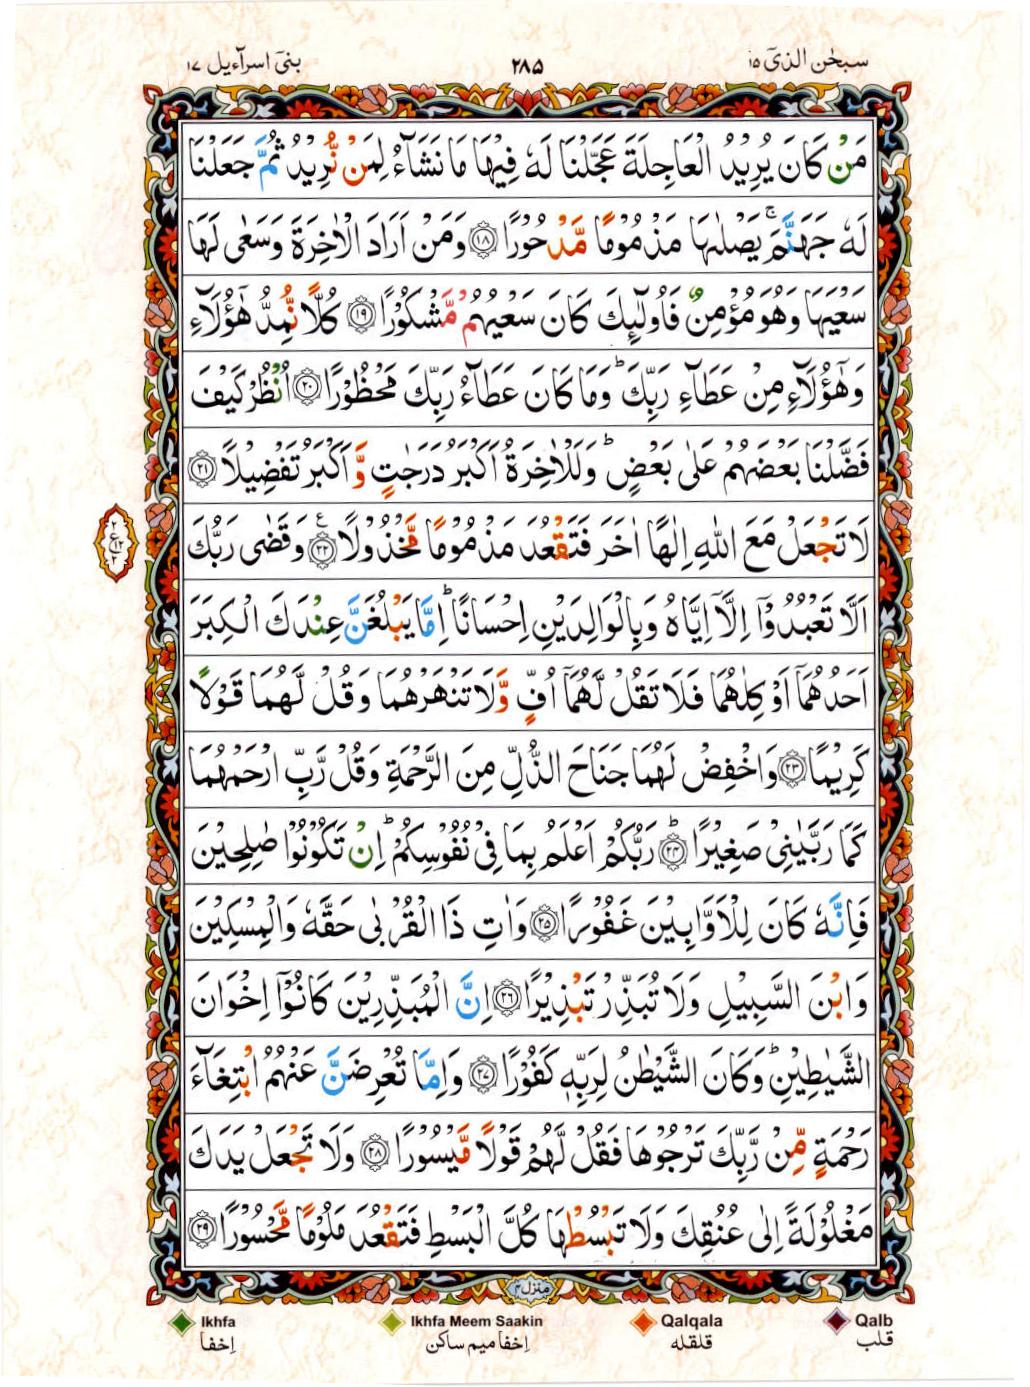 سبحٰن الذیٓ ١٥
٢٨٥
بنیٓ اسرآءیل ١٧
مَنْ كَانَ يُرِيْدُ الْعَاجِلَةَ عَجَّلْنَا لَهٗ فِيْهَا مَا نَشَآءُ لِمَنْ نُّرِيْدُ ثُمَّ جَعَلْنَا
لَهٗ جَهَنَّمَ ۚ يَصْلٰىهَا مَذْمُوْمًا مَّدْحُوْرًا ١٨ وَمَنْ اَرَادَ الْاٰخِرَةَ وَسَعٰى لَهَا
سَعْيَهَا وَهُوَ مُؤْمِنٌ فَاُولٰٓئِكَ كَانَ سَعْيُهُمْ مَّشْكُوْرًا ١٩ كُلًّا نُّمِدُّ هٰٓؤُلَآءِ
وَهٰٓؤُلَآءِ مِنْ عَطَآءِ رَبِّكَ ؕ وَمَا كَانَ عَطَآءُ رَبِّكَ مَحْظُوْرًا ٢٠ اُنْظُرْ كَيْفَ
فَضَّلْنَا بَعْضَهُمْ عَلٰى بَعْضٍ ؕ وَلَلْاٰخِرَةُ اَكْبَرُ دَرَجٰتٍ وَّاَكْبَرُ تَفْضِيْلًا ٢١
لَا تَجْعَلْ مَعَ اللّٰهِ اِلٰهًا اٰخَرَ فَتَقْعُدَ مَذْمُوْمًا مَّخْذُوْلًا ٢٢ ع وَقَضٰى رَبُّكَ
اَلَّا تَعْبُدُوْٓا اِلَّآ اِيَّاهُ وَبِالْوَالِدَيْنِ اِحْسَانًا ؕ اِمَّا يَبْلُغَنَّ عِنْدَكَ الْكِبَرَ
اَحَدُهُمَآ اَوْ كِلٰهُمَا فَلَا تَقُلْ لَّهُمَآ اُفٍّ وَّلَا تَنْهَرْهُمَا وَقُلْ لَّهُمَا قَوْلًا
كَرِيْمًا ٢٣ وَاخْفِضْ لَهُمَا جَنَاحَ الذُّلِّ مِنَ الرَّحْمَةِ وَقُلْ رَّبِّ ارْحَمْهُمَا
كَمَا رَبَّيٰنِىْ صَغِيْرًا ٢٤ ؕ رَبُّكُمْ اَعْلَمُ بِمَا فِىْ نُفُوْسِكُمْ ؕ اِنْ تَكُوْنُوْا صٰلِحِيْنَ
فَاِنَّهٗ كَانَ لِلْاَوَّابِيْنَ غَفُوْرًا ٢٥ وَاٰتِ ذَا الْقُرْبٰى حَقَّهٗ وَالْمِسْكِيْنَ
وَابْنَ السَّبِيْلِ وَلَا تُبَذِّرْ تَبْذِيْرًا ٢٦ اِنَّ الْمُبَذِّرِيْنَ كَانُوْٓا اِخْوَانَ
الشَّيٰطِيْنِ ؕ وَكَانَ الشَّيْطٰنُ لِرَبِّهٖ كَفُوْرًا ٢٧ وَاِمَّا تُعْرِضَنَّ عَنْهُمُ ابْتِغَآءَ
رَحْمَةٍ مِّنْ رَّبِّكَ تَرْجُوْهَا فَقُلْ لَّهُمْ قَوْلًا مَّيْسُوْرًا ٢٨ وَلَا تَجْعَلْ يَدَكَ
مَغْلُوْلَةً اِلٰى عُنُقِكَ وَلَا تَبْسُطْهَا كُلَّ الْبَسْطِ فَتَقْعُدَ مَلُوْمًا مَّحْسُوْرًا ٢٩
منزل ٤
Ikhfa Ikhfa Meem Saakin Qalqala Qalb
اِخفا اِخفا میم ساکن قلقله قلب